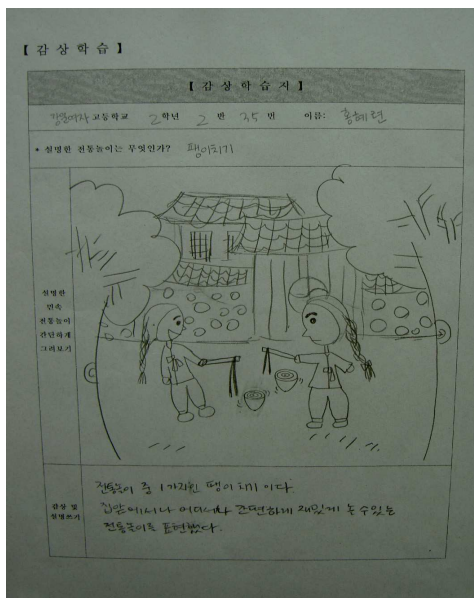 【 감 상 학 습 】
【 감 상 학 습 지 】
경일여자 고등학교 2 학년 2 반 35 번 이름: 홍혜련
* 설명한 전통놀이는 무엇인가? 팽이치기
설명한
민속
전통놀이
간단하게
그려보기
감상 및
설명쓰기
전통놀이 중 1가지인 팽이치기 이다.
집앞에서나 어디서나 간편하게 재밌게 놀 수 있는
전통놀이를 표현했다.